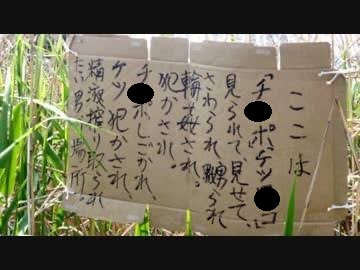 ここは
「チ●ポ、ケツ●コ」
見られて、見せて、
さわられ嬲られ
輪姦され。
犯かされ。
チ●ポしごかれ、
ケツ犯かされ、
精液搾り取られ
たい男の場所。